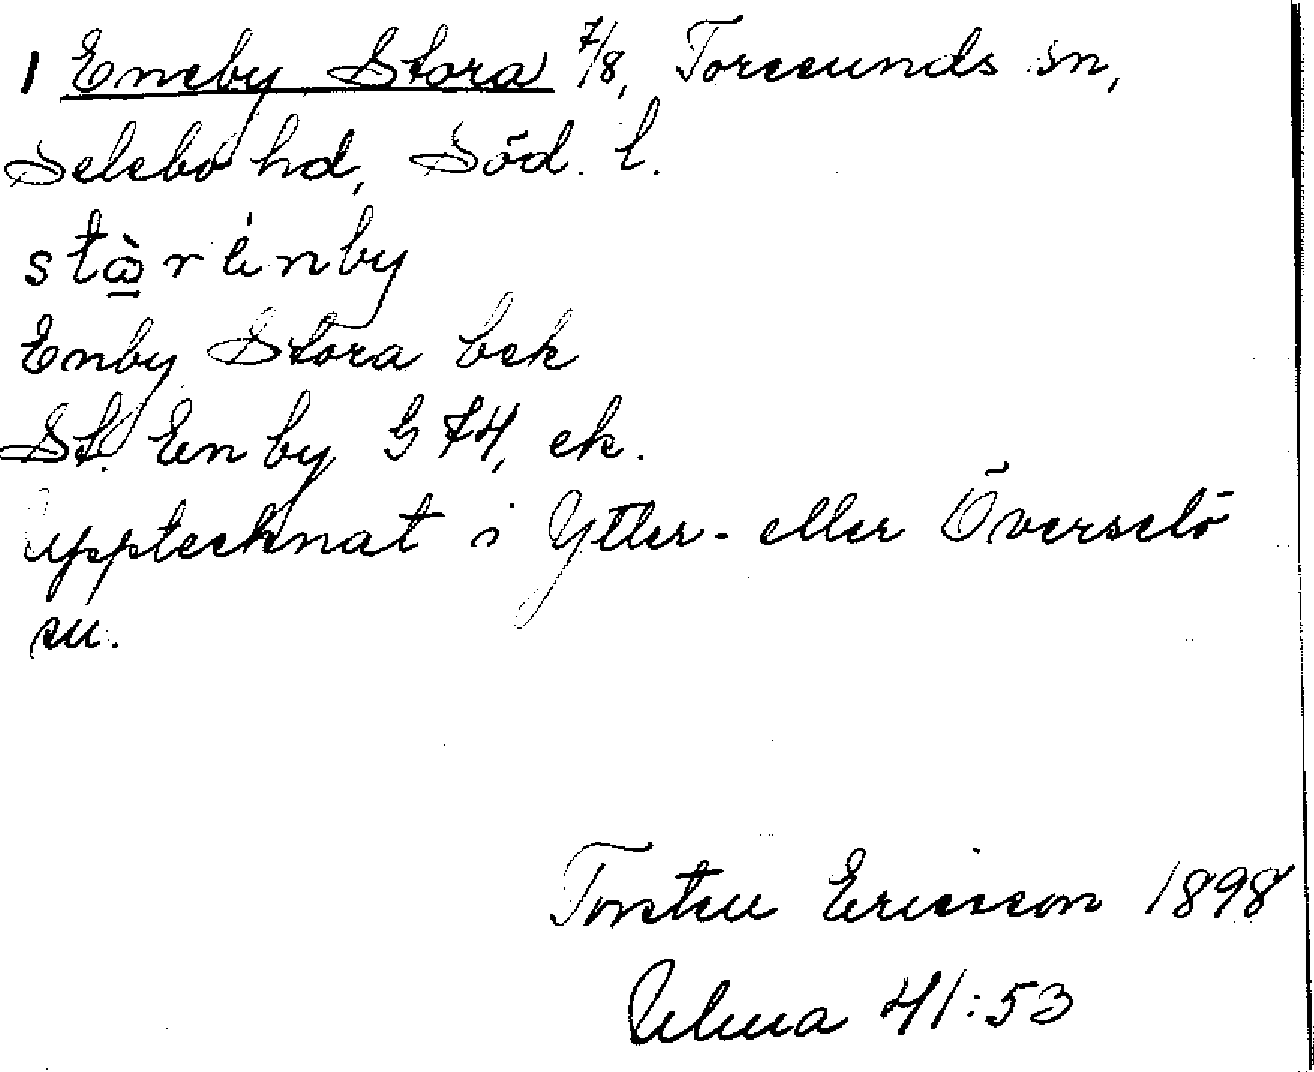 1 Eneby Stora 7/8, Toresunds sn,
Selebo hd, Söd. l.
stàr énby
Enby Stora bek
St. Enby G 74, ek.
Upptecknat i Ytter- eller Överselö
sn.
Torsten Ericsson 1898
Ulma 41:53